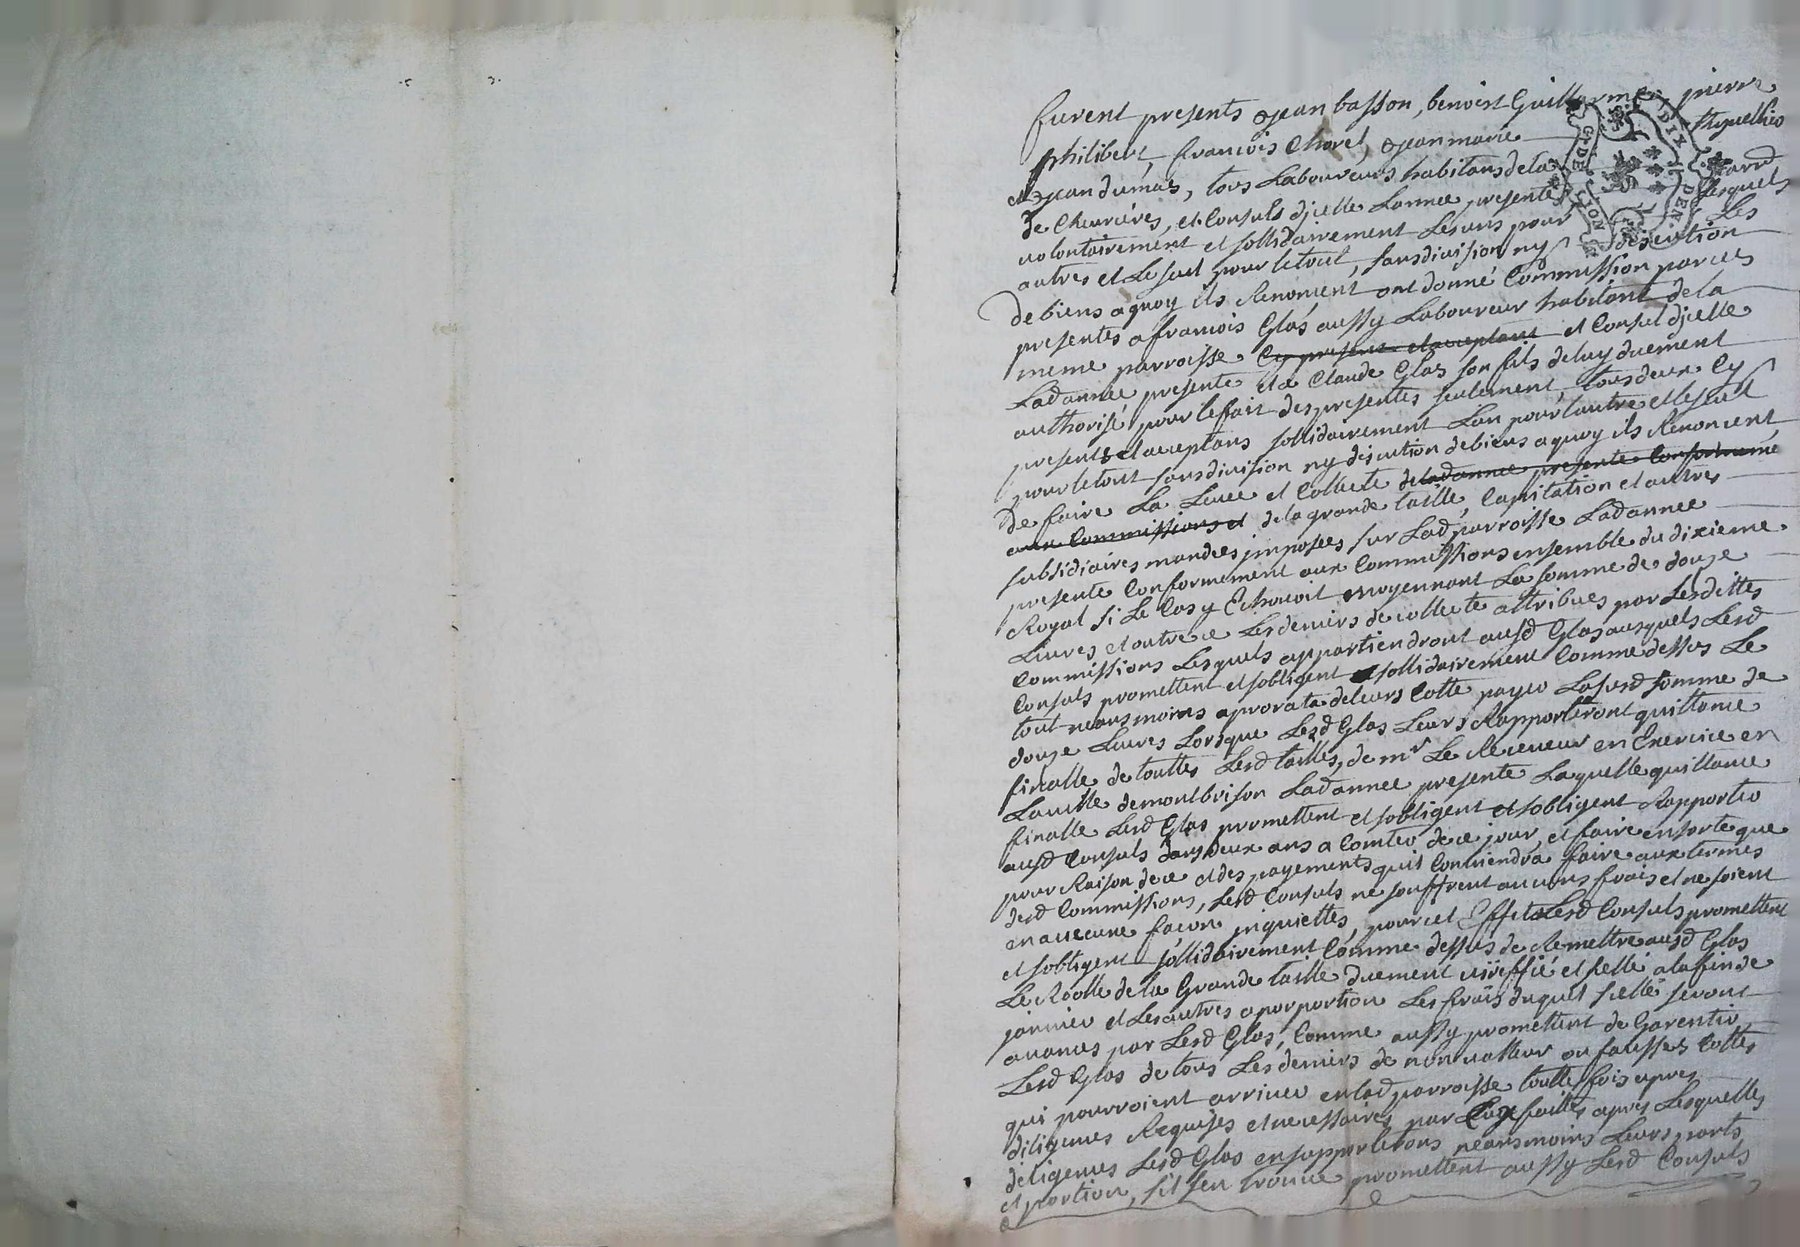 furent presents Jean basson, benoist Guillermet, pierre
philibert, francois Chorel, Jean marie thquelhies
et Jean dumas, tous Laboureurs habitans de la parrd
de Chevriéres, et Consuls djcelle Lannee presente Lesquels
volontairement et sollidairement Les uns pour Les
autres et Le seul pour le tout, sans division ny discution
de biens a quoy ils Renoncent ont donné Commission par ces
presentes a francois Glas aussy Laboureur habitant de la
meme parroisse Cy present et acceptant et Consul djcelle
Ladannee presente et a Claude Glas son fils de luy duement
authorisé pour le fait des presentes seulement tous deux Cy
presents et acceptans sollidairement L'un pour l'autre et le seul
pour le tout sans division ny discution de biens a quoy ils Renoncent
De faire La Levee et Collecte de ladannee presente Conformeme
aux Commissions et de la grande taille, Capitation et autres
subsidiaires mandees jmposees sur Lad parroisse Ladannee
presente Conformement aux Commissions ensemble du dixieme
Royal si Le Cas y Echouoit moyennant La somme de douze
Livres et outre ce Les deniers de collecte attribues par Lesdittes
Commissions Lesquels appartiendront ausd Glas ausquels Lesd
Consuls promettent et sobligent sollidairement Comme dessus Le
tout neansmoins a prorata de leurs Cotte payer La susd somme de
douze Livres Lorsque Lesd Glas Leurs Rapporteront quittance
finalle de touttes Lesd tailles, de mr Le Receveur en Exercice en
La ville de montbrison Ladannee presente Laquelle quittance
finalle Lesd Glas promettent et sobligent et sobligent Rapporter
ausd Consuls dans deux ans a Comter de ce jour, et faire en sorte que
pour Raison de ce et des payements quil Conviendra faire aux termes
desd Commissions, Lesd Consuls ne souffrent aucuns frais et ne soient
en aucune facon jnquiettés, pour cet Effet Lesd Consuls promettent
et sobligent sollidairement Comme dessus de Remettre ausd Glas
Le Rolle de la Grande taille duement veriffié et sellé a la fin de
janvier et Les autres a porportion Les frais duquel sellé seront
avances par Lesd Glas, Comme aussy promettent de Garentir
Lesd Glas de tous Les deniers de non valleur ou fausses Cottes
qui pourroient arriver en lad parroisse toutte fois apres
diligences Requises et necessaires par Eux faittes apres Lesquelles
diligences Lesd Glas en supporterons neansmoins Leurs parts
et portion, s'il s'en trouve promettent aussy Lesd Consuls
G. DE LYON
DIX DEN